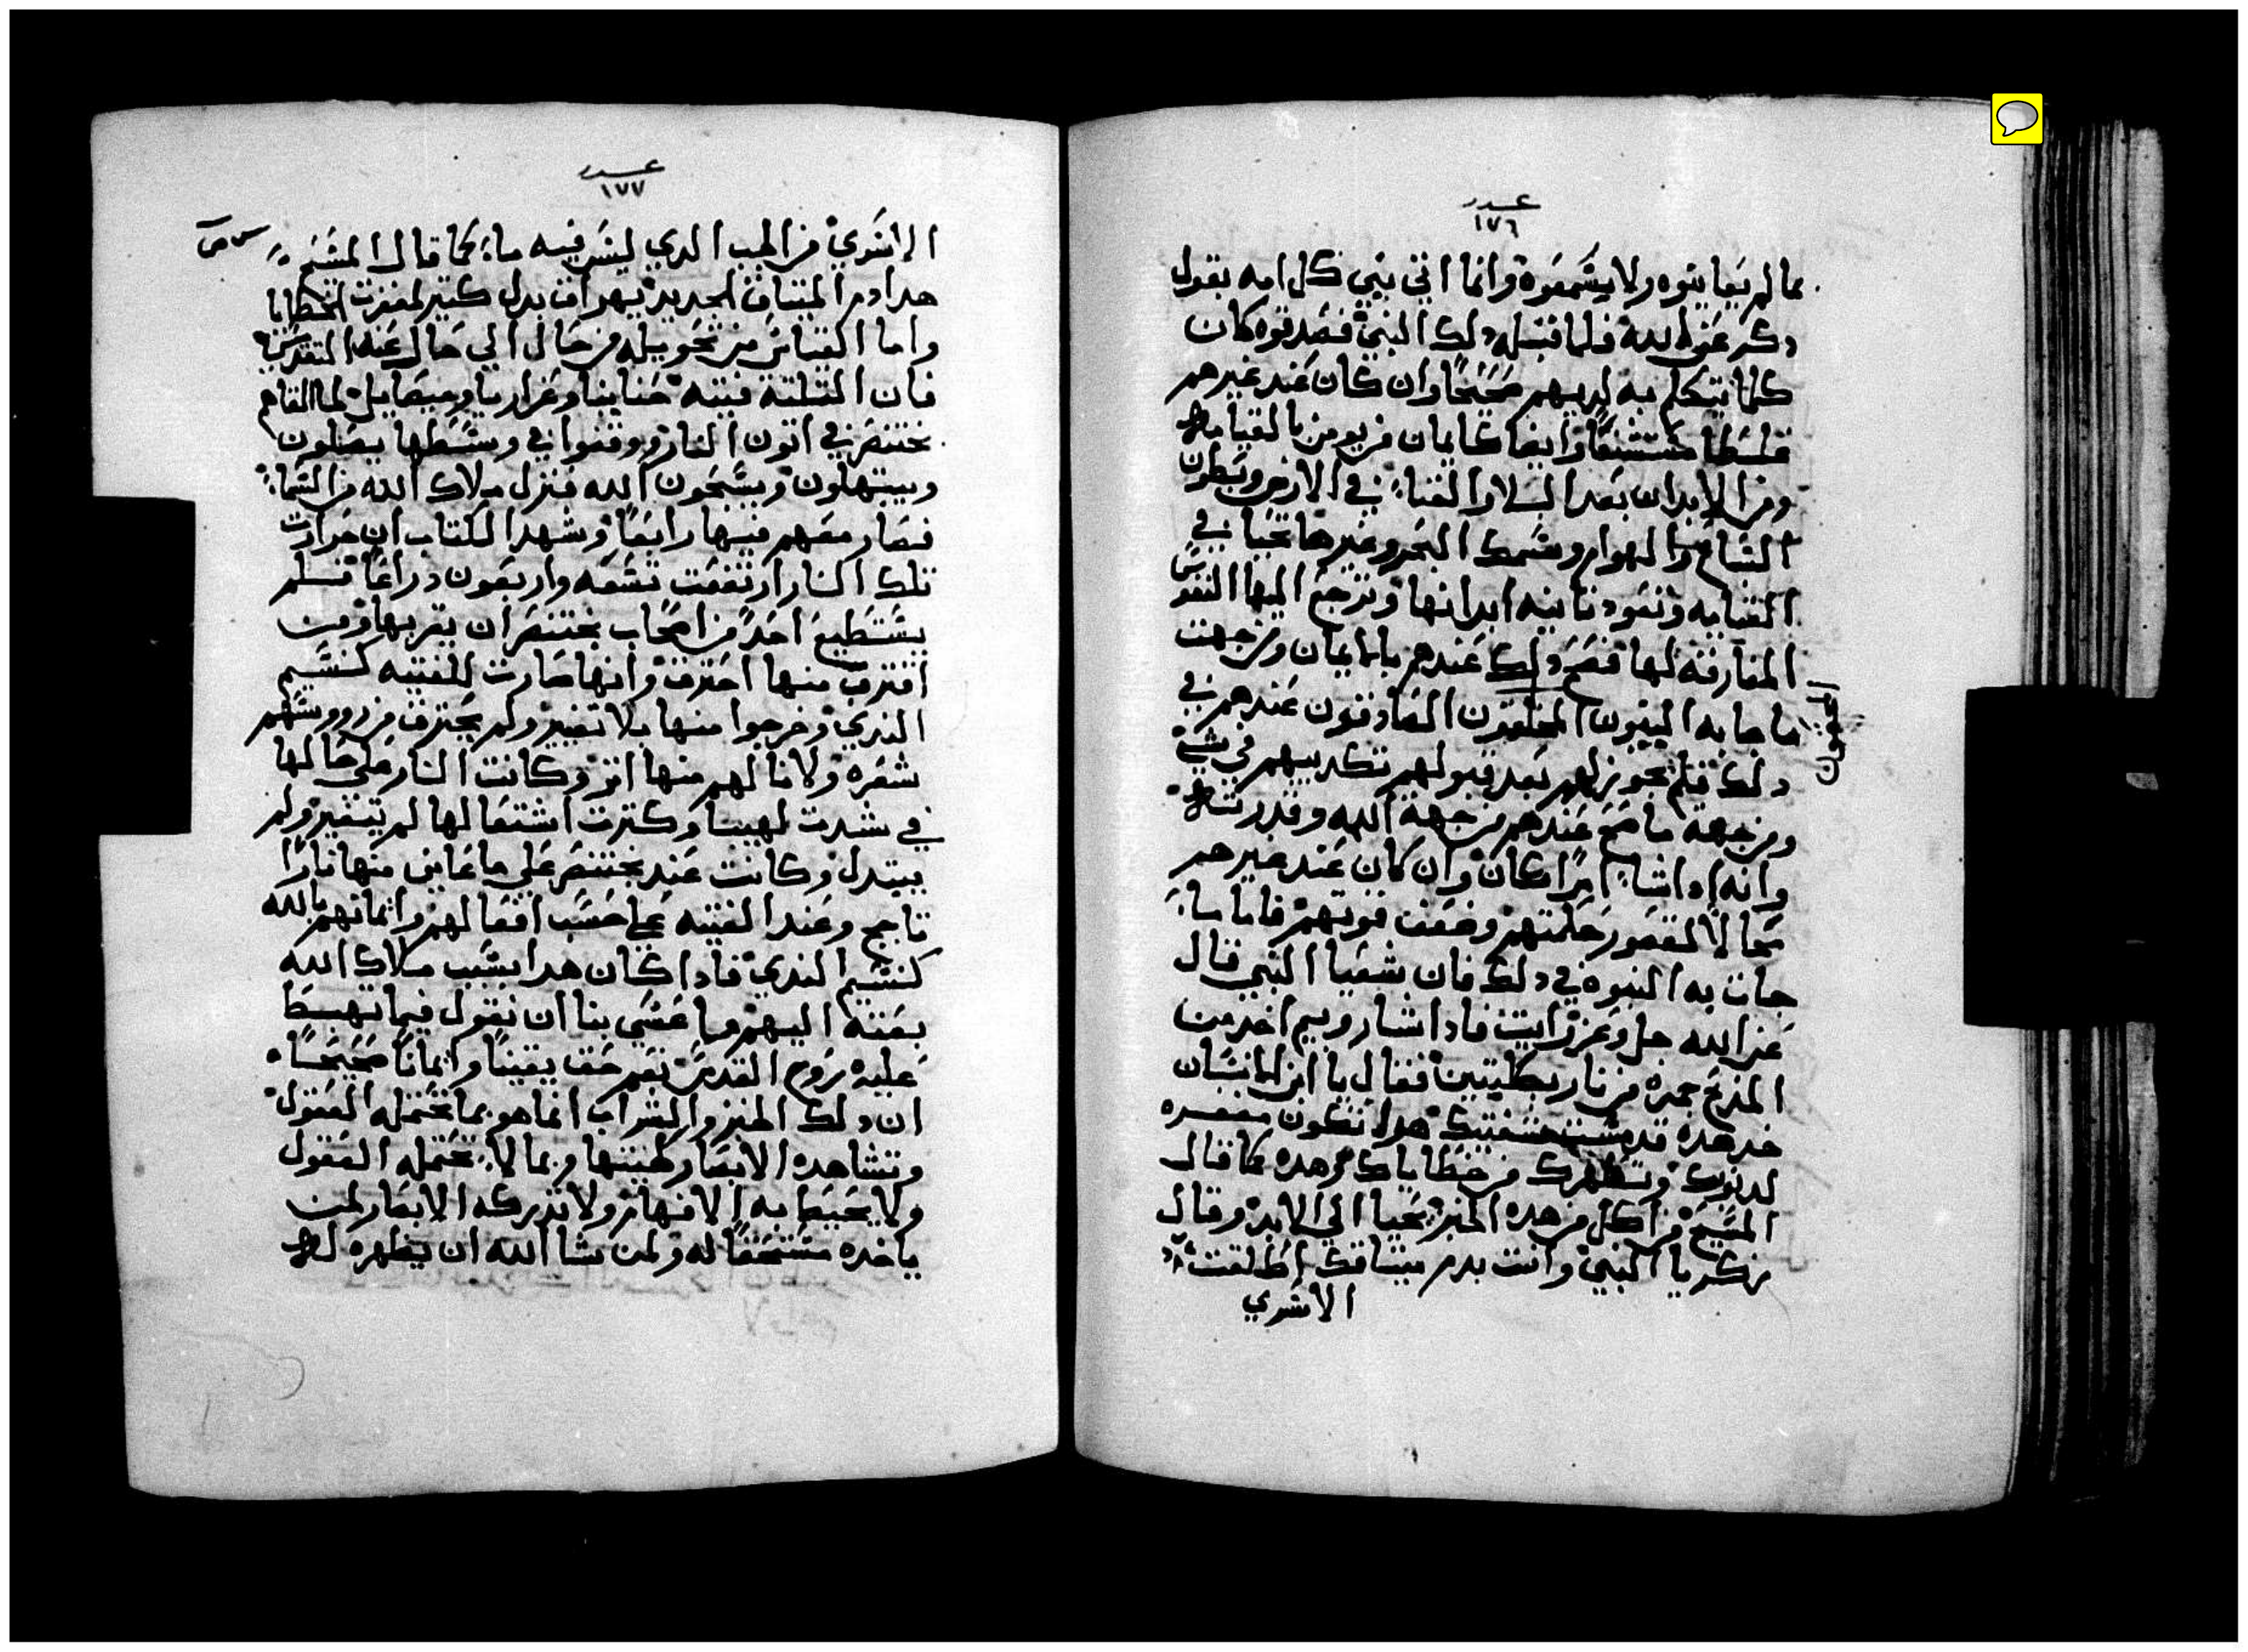 عدد
١٧٦
مما لم يعاينوه ولا يسمعوه وانما اتي نبي كل امه بقول
دكر عن الله فلما قبل دلك النبي فصدقوه كان
كلما يتكلم به لديهم صحيحًا وان كان عند غيرهم
غلطا مستشنعًا وايضا كايمان من يومن بالقيامه
ومن الابدان بعد البلا والفناء في الارض وبطون
السباع والهوام وسمك البحر وغيرها تحيا في
القيامه وتعود ثانيه ابدانها وترجع اليها النفوس
المفارقه لها فصح دلك عندهم بالايمان من جهت
ما جا به النبيون المخلصون الصادقون عندهم في
العقول
دلك فلم يجوز لهم بعد قبولهم تكديبهم في شي
ومن جهة ما صح عندهم من جهة الله وقدرته
وانه ادا شاء امرًا كان وان كان عند غيرهم
محالاً لقصور حكمتهم وضعف قوتهم فاما ما
جات به النبوه في دلك فان شعيا النبي قال
عن الله جل وعز رايت فادا اشاروبيم اخد من
المدبح جمره من نار بكلبتين فقال يا ابن الانسان
خد هده قد مست شفتيك هدا تكون مغفره
لدنوبك وتطهرك من خطاياك وهده كما قال
المسيح من اكل من هده الخبز يحيا الي الابد وقال
زكريا النبي وانت بدم ميتاقك اطلقت
الاسري
عدد
١٧٧
الاسري من الجب الدي ليس فيه ماء كما قال المسيح
هدا دم الميتاق الجديد يهراق بدل كتير لمغفرت الخطايا
واما القياس من تحويله من حال الي حال عند التقديس
فان التلتة فتيه حنانيا وعزاريا وميصاييل لما القاهم
بختنصر في اتون النار ووقفوا في وسطها يصلون
ويبتهلون ويسبحون الله فنزل ملاك الله من السماء
فصار معهم فيها رابعًا وشهد الكتاب ان حرارت
تلك النار ارتفعت تسعه واربعون دراعًا فلم
يستطيع احدًا من اصحاب بختنصر ان يقربها ومن
اقترب منها احترق وانها صارت للفتيه كنسيم
الندي وخرجوا منها بلا تغيير ولم يحترق من رووسهم
شعره ولا نالهم منها اتر وكانت النار علي حالها
في شدت لهيبها وكترت اشتعالها لم يتغير ولم
يبتدل وكانت عند بختنصر علي ما عاين منها نارًا
تاجج وعند الفتيه علي حسب افعالهم وايمانهم بالله
كنسيم الندي فادا كان هدا بسبب ملاك الله
بعته اليهم فما عسي بنا ان نقول فيما يهبط
عليه روح القدس نعم حقـ يقينًا وايمانًا صحيحًا
ان دلك الخبز والشراب انما هو مما تحتمله العقول
وتشاهده الابصار لهيتها ومما لا تحتمله العقول
ولا يحيط به الافهام ولا تدركه الابصار لمن
ياخده مستحقًا له ولمن شا الله ان يظهره له